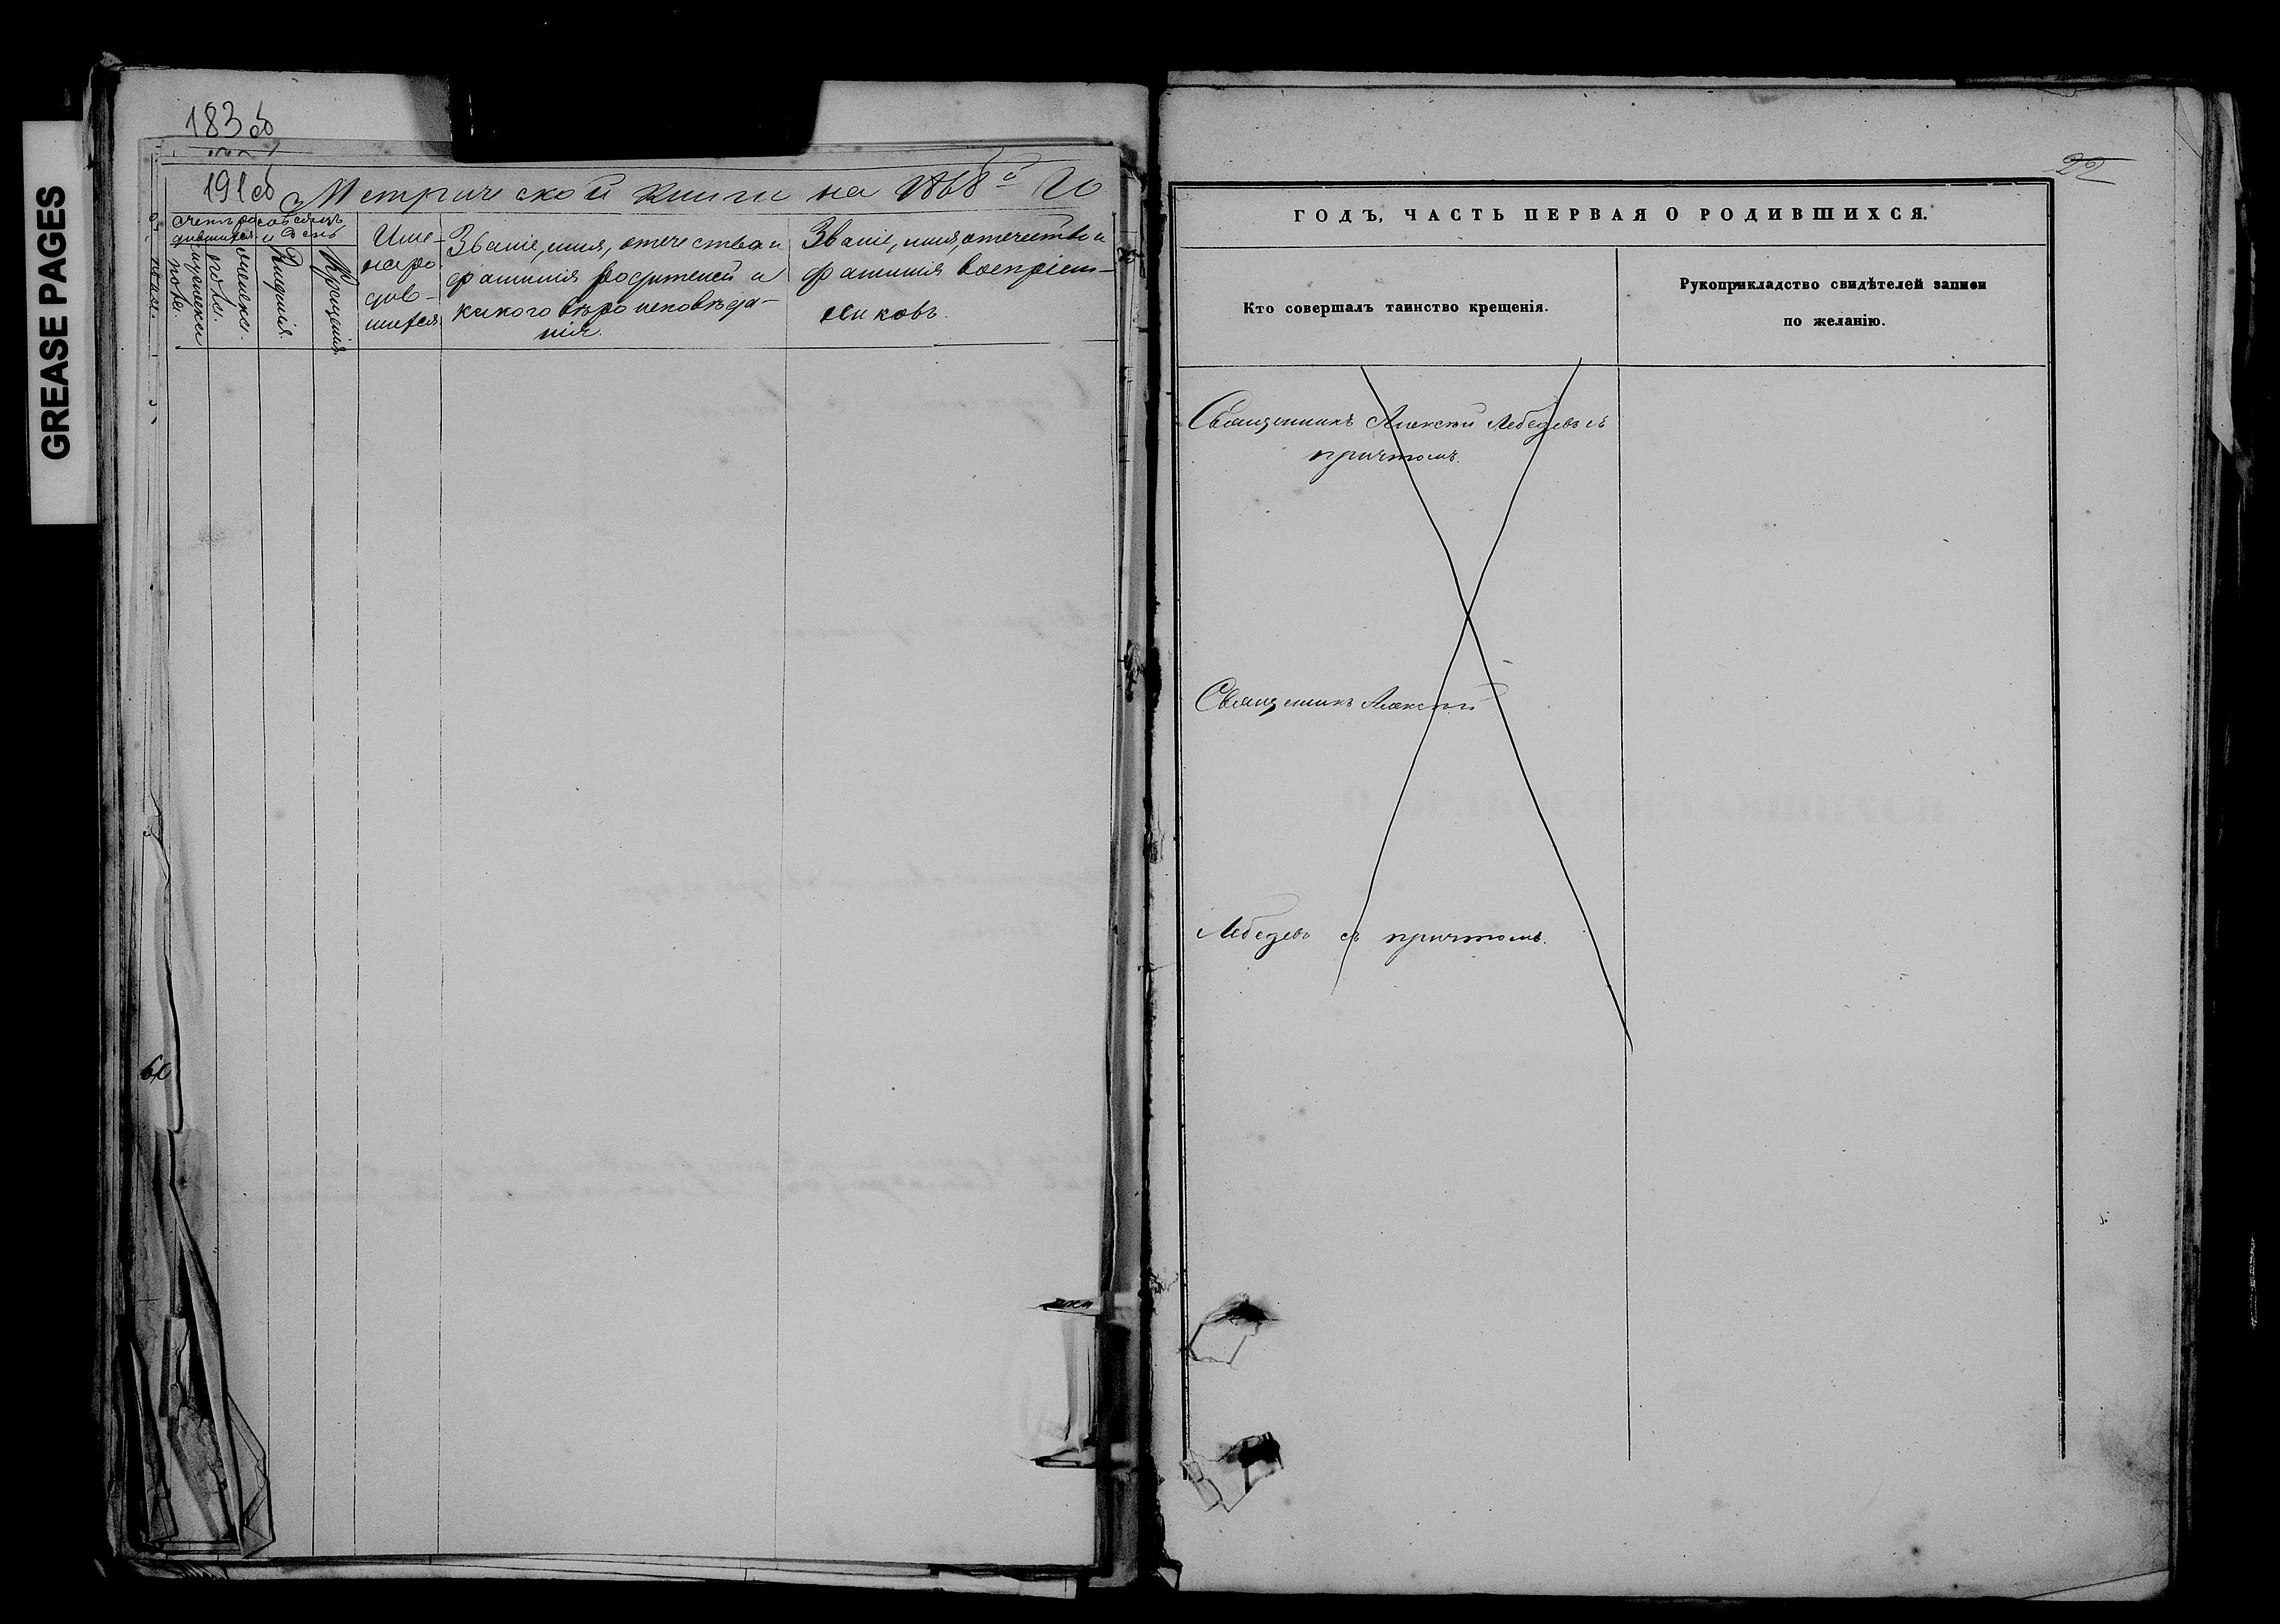 GREASE PAGES
183 об
191 об
Метрической книги на 1868й го
Счетъ ро
дившихся
мужеска
пола.
женска-
пола.
Мѣсяцъ
и День
Рожденія.
Крещенія.
Име-
на ро
див-
шихся
Званіе, имя, отечество и
фамилія родителей и
какого вѣроисповѣда-
нія.
Званіе, имя, отечество и
фамилія воспріем-
никовъ.
22
ГОДЪ, ЧАСТЬ ПЕРВАЯ О РОДИВШИХСЯ.
Кто совершалъ таинство крещенія.
Рукоприкладство свидѣтелей записи
по желанію.
Священникъ Алексѣй Лебедевъ съ
причтомъ.
Священникъ Алексѣй
Лебедевъ съ причтомъ.